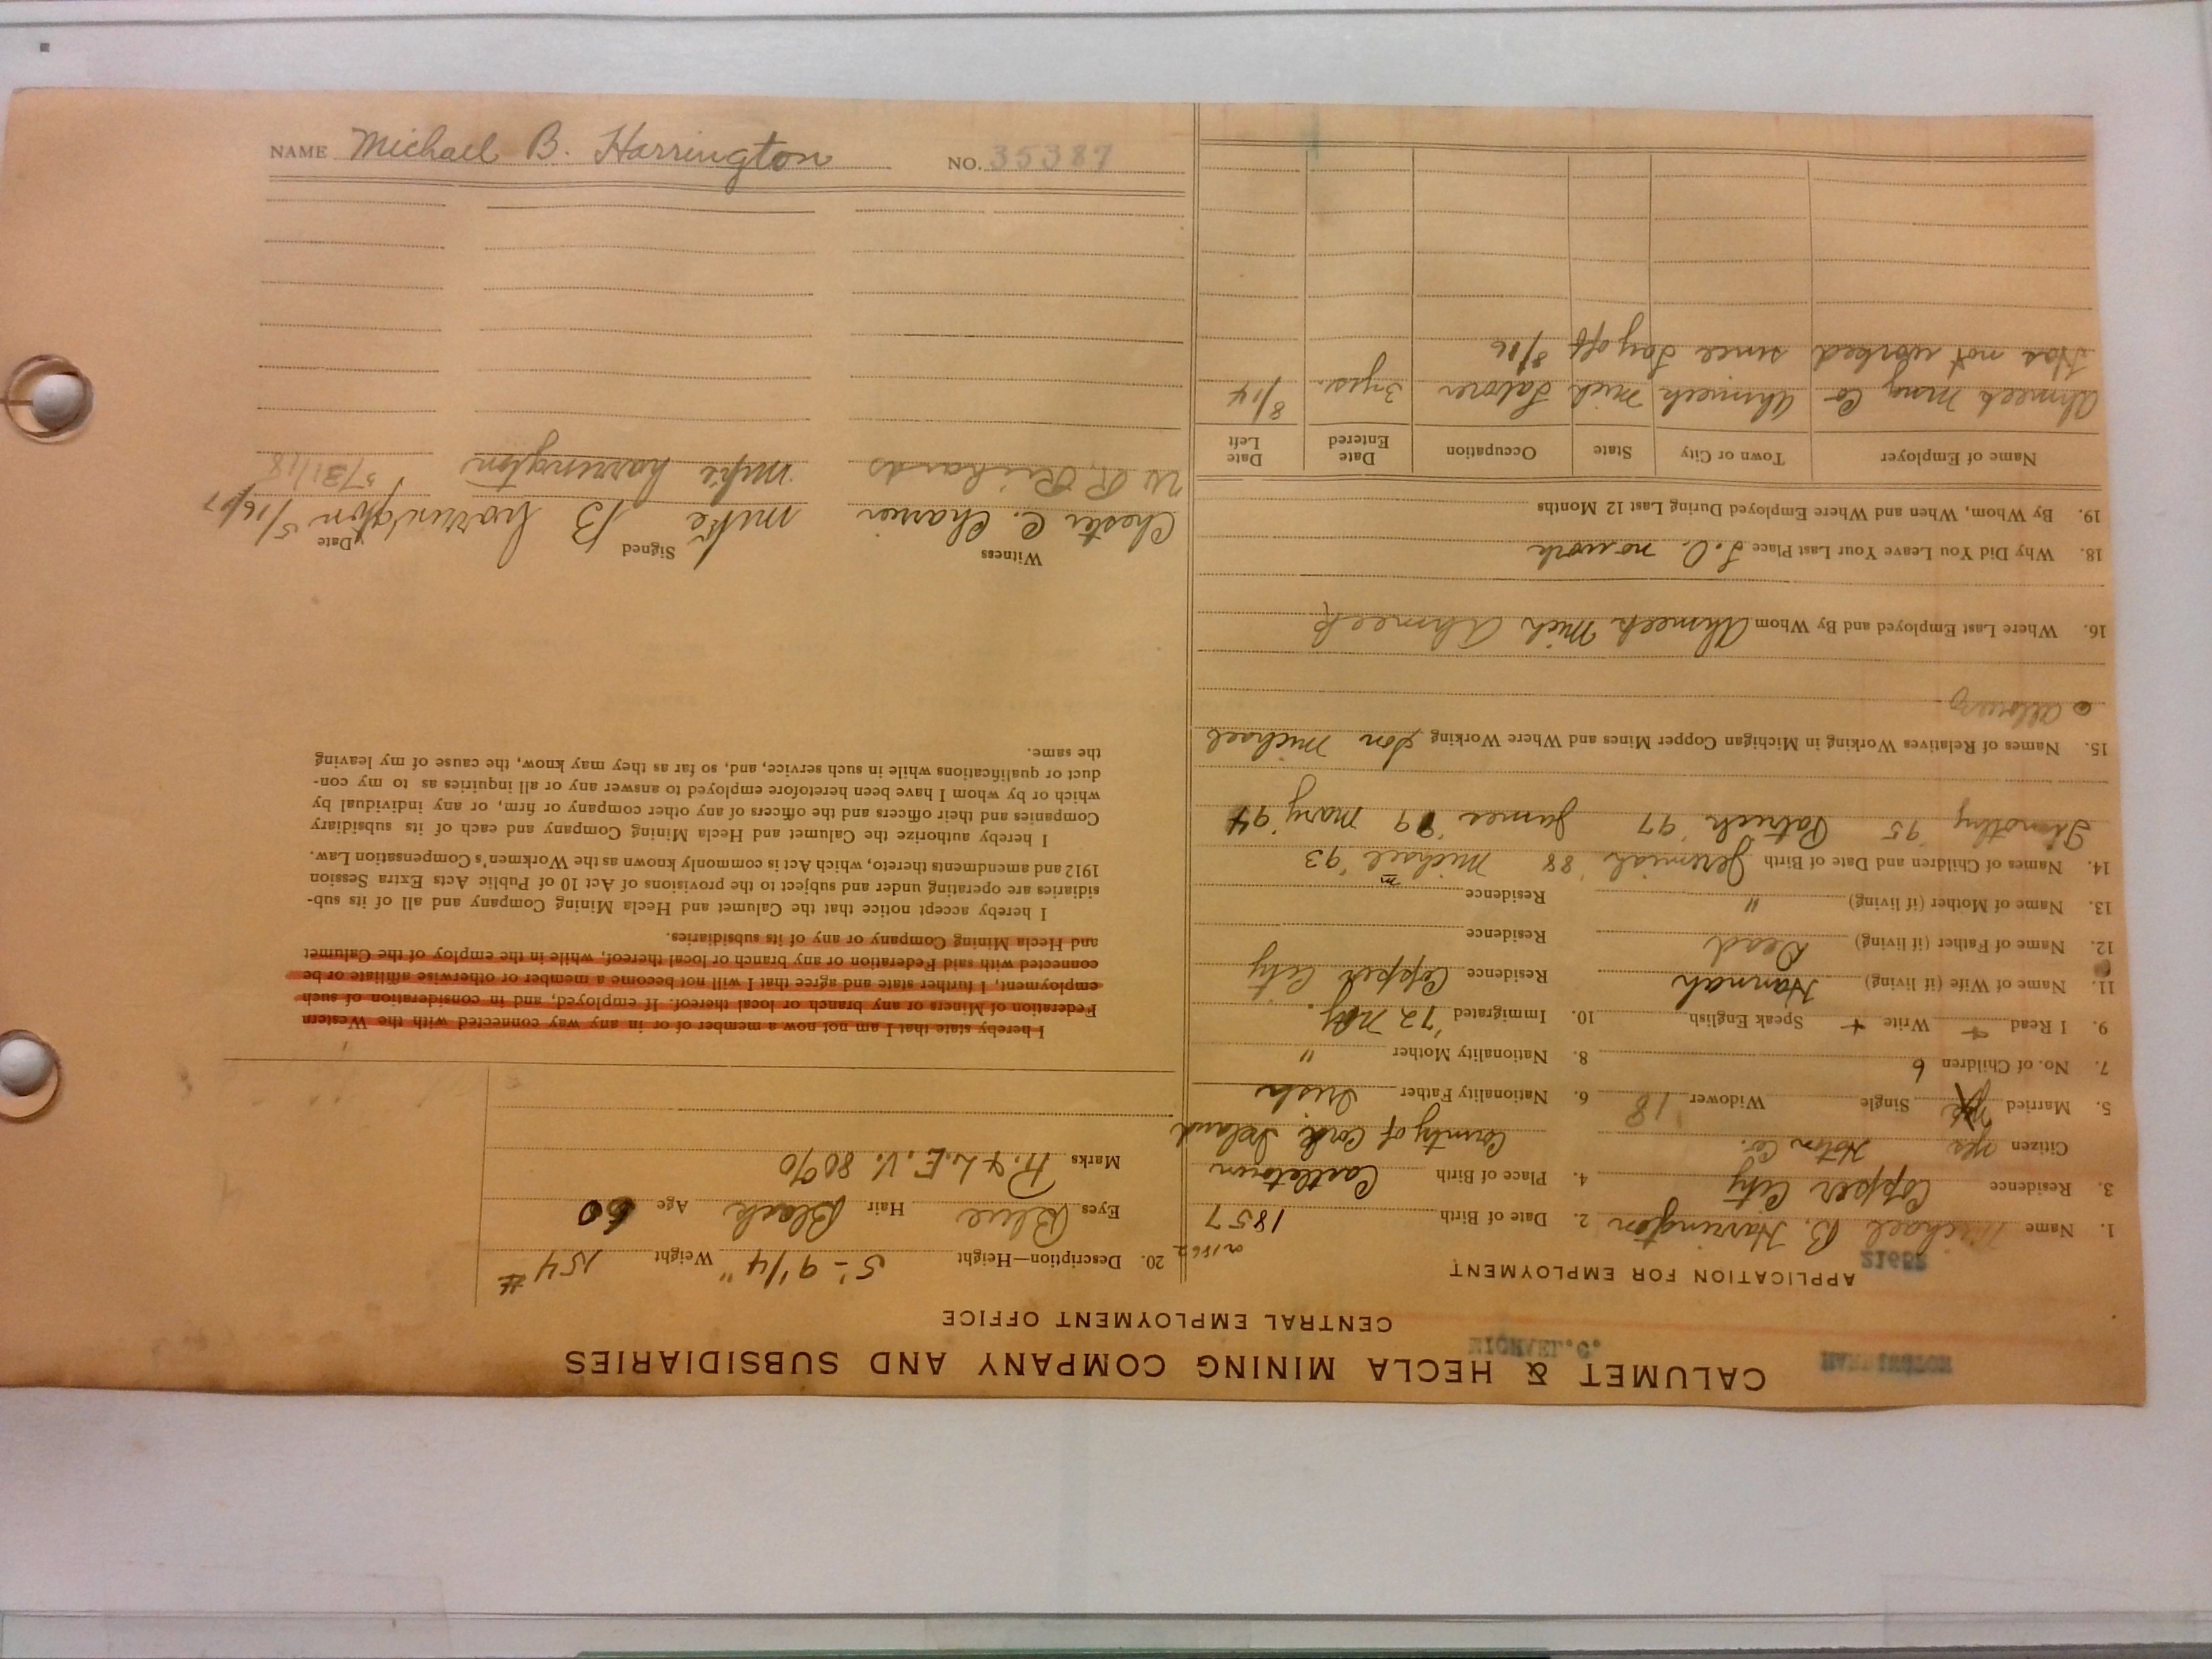 NAME Michael B. Harrington NO. 35387
CALUMET & HECLA MINING COMPANY AND SUBSIDIARIES
MICHAEL.C.
CENTRAL EMPLOYMENT OFFICE
APPLICATION FOR EMPLOYMENT
21652
1. Name Michael B. Harrington 2. Date of Birth 1857 or 1862
3. Residence Copper City 4. Place of Birth Castletown
Citizen yes Hoton Co. County of Cork Ireland
5. Married Single Widower '18 6. Nationality Father Irish
7. No. of Children 6 8. Nationality Mother "
9. I Read + Write + Speak English 10. Immigrated '72
11. Name of Wife (if living) Hannah Residence Copper City
12. Name of Father (if living) Dead Residence
13. Name of Mother (if living) " Residence
14. Names of Children and Date of Birth Jeremiah '88 Michael '93
Timothy '95 Patrick '97 James '99 Mary '94
15. Names of Relatives Working in Michigan Copper Mines and Where Working Son Michael
Allouez
16. Where Last Employed and By Whom Ahmeek Mich Ahmeek
18. Why Did You Leave Your Last Place L.O. no work
19. By Whom, When and Where Employed During Last 12 Months
Name of Employer Town or City State Occupation Date Entered Date Left
Ahmeek Mng Co Ahmeek Mich Laborer 3 yrs. 8/14
Has not worked since Lay off 8/16
20. Description—Height 5'- 9 1/4" Weight 154 #
Eyes Blue Hair Black Age 60
Marks R. & L. E. V. 80%
I hereby state that I am not now a member of or in any way connected with the Western
Federation of Miners or any branch or local thereof. If employed, and in consideration of such
employment, I further state and agree that I will not become a member or otherwise affiliate or be
connected with said Federation or any branch or local thereof, while in the employ of the Calumet
and Hecla Mining Company or any of its subsidiaries.
I hereby accept notice that the Calumet and Hecla Mining Company and all of its sub-
sidiaries are operating under and subject to the provisions of Act 10 of Public Acts Extra Session
1912 and amendments thereto, which Act is commonly known as the Workmen's Compensation Law.
I hereby authorize the Calumet and Hecla Mining Company and each of its subsidiary
Companies and their officers and the officers of any other company or firm, or any individual by
which or by whom I have been heretofore employed to answer any or all inquiries as to my con-
duct or qualifications while in such service, and, so far as they may know, the cause of my leaving
the same.
Witness Signed Date
Chester C. Charrier Mike B Harrington 5/16/17
W R Richards Mike Harrington 5/31/18